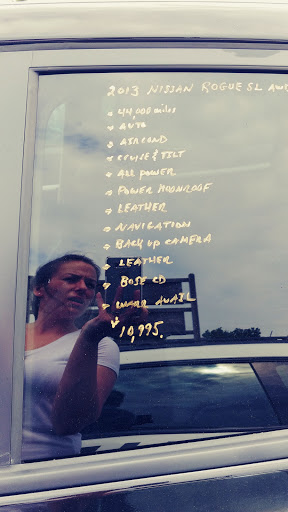 2013 NISSAN ROGUE SL AWD
44,000 miles
AUTO
AIR COND
CRUISE & TILT
ALL POWER
POWER MOONROOF
LEATHER
NAVIGATION
BACK UP CAMERA
LEATHER
BOSE CD
WARR AVAIL
$10,995.